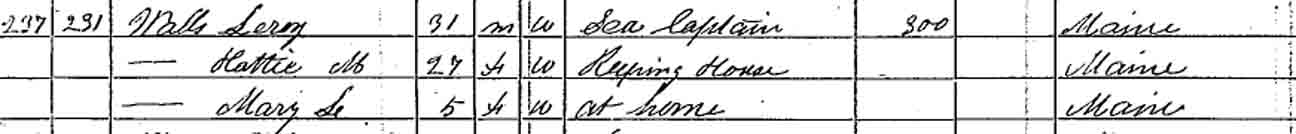 237 231 Walls Leroy 31 m W Sea Captain 300 Maine
— Hattie M 27 f W Keeping House Maine
— Mary Le 5 f W at home Maine